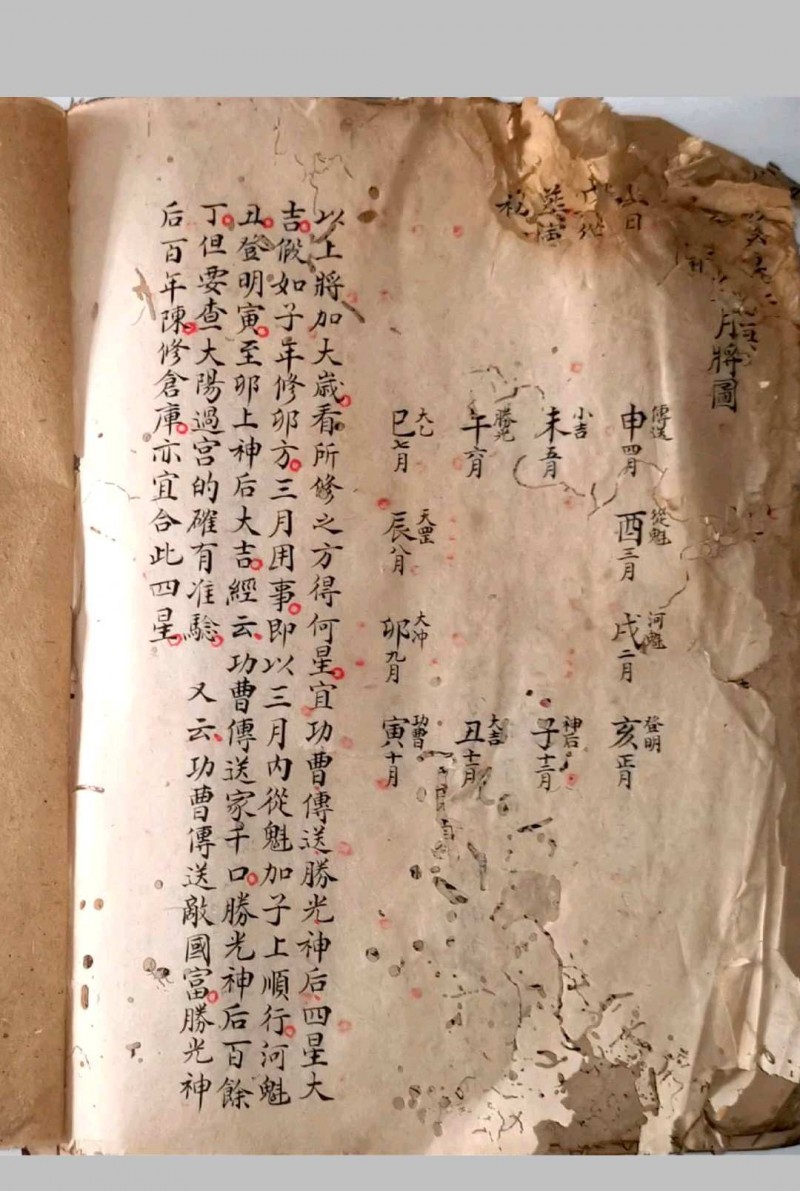 月將圖
傳送
申四月
從魁
酉三月
河魁
戌二月
登明
亥正月
小吉
未五月
神后
子十二月
勝光
午六月
大吉
丑十一月
太乙
巳七月
天罡
辰八月
大冲
卯九月
功曹
寅十月
以上將加大歲看所修之方得何星宜功曹傳送勝光神后四星大
吉假如子年修卯方三月用事即以三月內從魁加子上順行河魁
丑登明寅至卯上神后大吉經云功曹傳送家千口勝光神后百餘
丁但要查大陽過宮的確有准驗 又云功曹傳送敵國富勝光神
后百年陳修倉庫亦宜合此四星